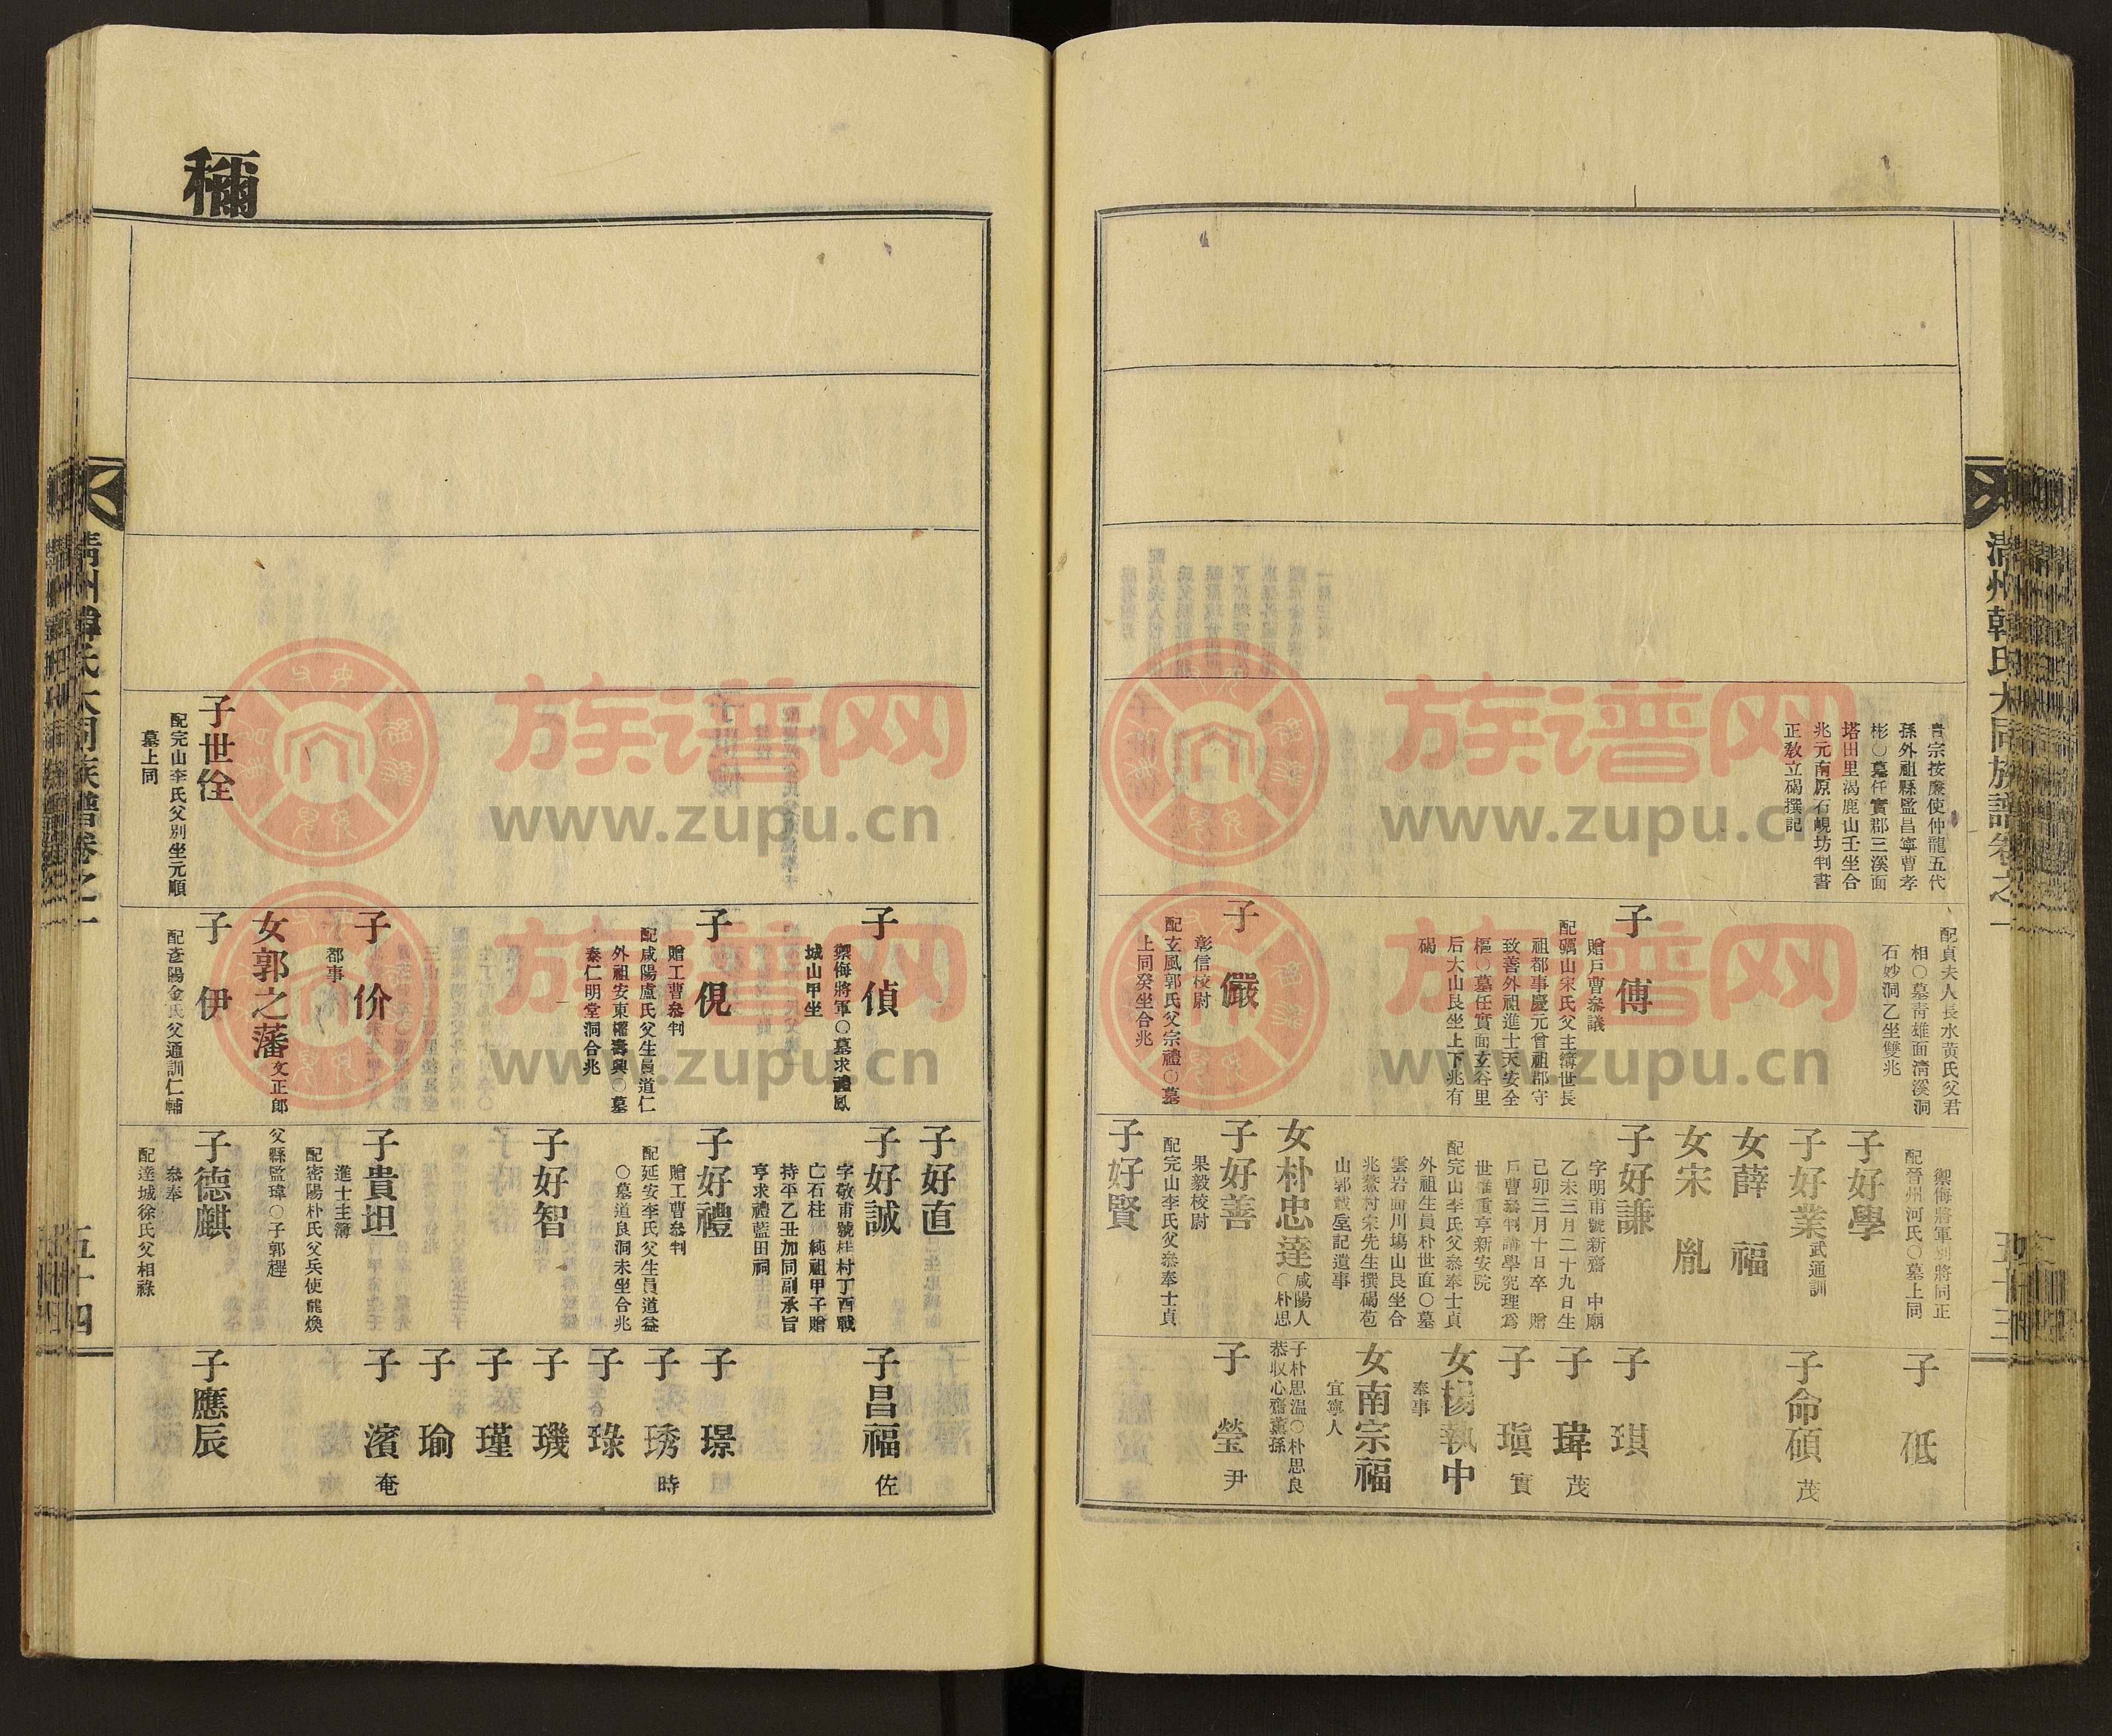 清州韓氏大同族譜卷之一
五十三
貴宗按廉使仲龍五代
孫外祖縣監昌寧曹孝
彬○墓任實郡三溪面
塔田里渴鹿山壬坐合
兆元南原石峴坊判書
正敎立碣撰記
配貞夫人長水黃氏父君
相○墓靑雄面淸溪洞
石妙洞乙坐雙兆
子傅
贈戶曹叅議
配礪山宋氏父主簿世長
祖都事慶元曾祖郡守
致善外祖進士天安全
樞○墓任實面玄谷里
后大山艮坐上下兆有
碣
子儼
彰信校尉
配玄風郭氏父宗禮○墓
上同癸坐合兆
禦侮將軍別將同正
配晉州河氏○墓上同
子好學
子好業 武通訓
女薛福
女宋胤
子好謙
字明甫號新齋 中廟
乙未三月二十九日生
己卯三月十日卒 贈
戶曹叅判講學究理爲
世推重享新安院
配完山李氏父叅奉士貞
外祖生員朴世直○墓
雲岩面川塲山艮坐合
兆鰲村宋先生撰碣苞
山郭㦿屋記遺事
女朴忠達 咸陽人○朴思
子好善
果毅校尉
配完山李氏父叅奉士貞
子好賢
子砥
子命碩 茂
子琪
子瑋 茂
子瑱 實
女楊執中
奉事
女南宗福
宜寧人
子朴思溫○朴思良
恭収心齋薰孫
子瑩 尹
禰
子世佺
配完山李氏父別坐元順
墓上同
子偵
禦侮將軍○墓求禮鳳
城山甲坐
子俔
贈工曹叅判
配咸陽盧氏父生員道仁
外祖安東權壽興○墓
秦仁明堂洞合兆
子价
都事
女郭之藩 文正郎
子伊
配彥陽金氏父通訓仁輔
子好直
子好誠
字敬甫號桂村丁酉戰
亡石柱 純祖甲子贈
持平乙丑加同副承旨
享求禮藍田祠
子好禮
贈工曹叅判
配延安李氏父生員道益
○墓道良洞未坐合兆
子好智
子貴坦
進士主簿
配密陽朴氏父兵使龍煥
父縣監瑋○子郭𧻓
子德麒
叅奉
配達城徐氏父相祿
子昌福 佐
子璟
子琇 時
子琭
子璣
子瑾
子瑜
子濱 奄
子應辰
淸州韓氏大同族譜卷之一
五十四
族谱网
www.zupu.cn
族谱网
www.zupu.cn
族谱网
www.zupu.cn
族谱网
www.zupu.cn